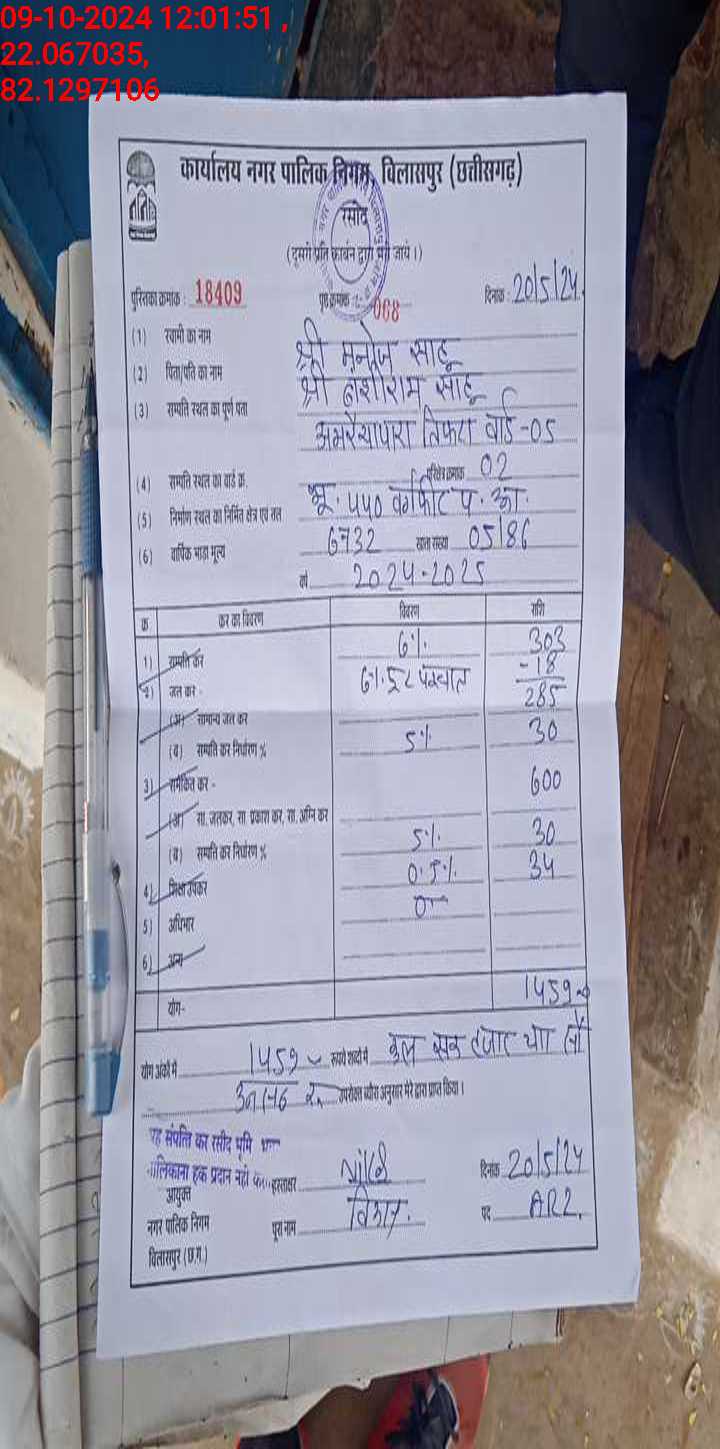 09-10-2024 12:01:51 ,
22.067035,
82.1297106
कार्यालय नगर पालिक निगम, विलासपुर (छत्तीसगढ़)
रसीद
(दूसरी प्रति कार्बन द्वारा भरी जायें।)
पुस्तिका क्रमांक : 18409 पृष्ठ क्रमांक : 068 दिनांक : 20/5/24.
(1) स्वामी का नाम श्री मनोज साहू
(2) पिता/पति का नाम श्री काशीराम साहू
(3) सम्पत्ति स्थल का पूर्ण पता अमरैयापारा तिफरा वार्ड-05
(4) सम्पत्ति स्थल का वार्ड क्र. परिक्षेत्र क्रमांक 02
(5) निर्माण स्थल का निर्मित क्षेत्र एवं तल भू. 550 वर्गफीट प. आ.
(6) वार्षिक भाड़ा मूल्य 6732 खाता संख्या 05186
वर्ष 2024-2025
क्र कर का विवरण विवरण राशि
1) सम्पत्ति कर 6%. 303
2) जल कर - 6%. छूट पश्चात -18
285
(अ) सामान्य जल कर
(ब) सम्पत्ति कर निर्धारण % 5% 30
3) समेकित कर - 600
(अ) सा. जलकर, सा. प्रकाश कर, सा. अग्नि कर
(ब) सम्पत्ति कर निर्धारण % 5%. 30
4) शिक्षा उपकर 0.5%. 34
5) अधिभार
6) अन्य
योग- 1459
योग अंकों में 1459 रूपये शब्दों में कुल एक हजार चार सौ
उनसठ रू. उपरोक्त ब्यौरा अनुसार मेरे द्वारा प्राप्त किया।
यह संपत्ति कर रसीद भूमि
मालिकाना हक प्रदान नहीं
आयुक्त हस्ताक्षर दिनांक 20/5/24
नगर पालिक निगम पूरा नाम पद ARI,
विलासपुर (छ.ग.)